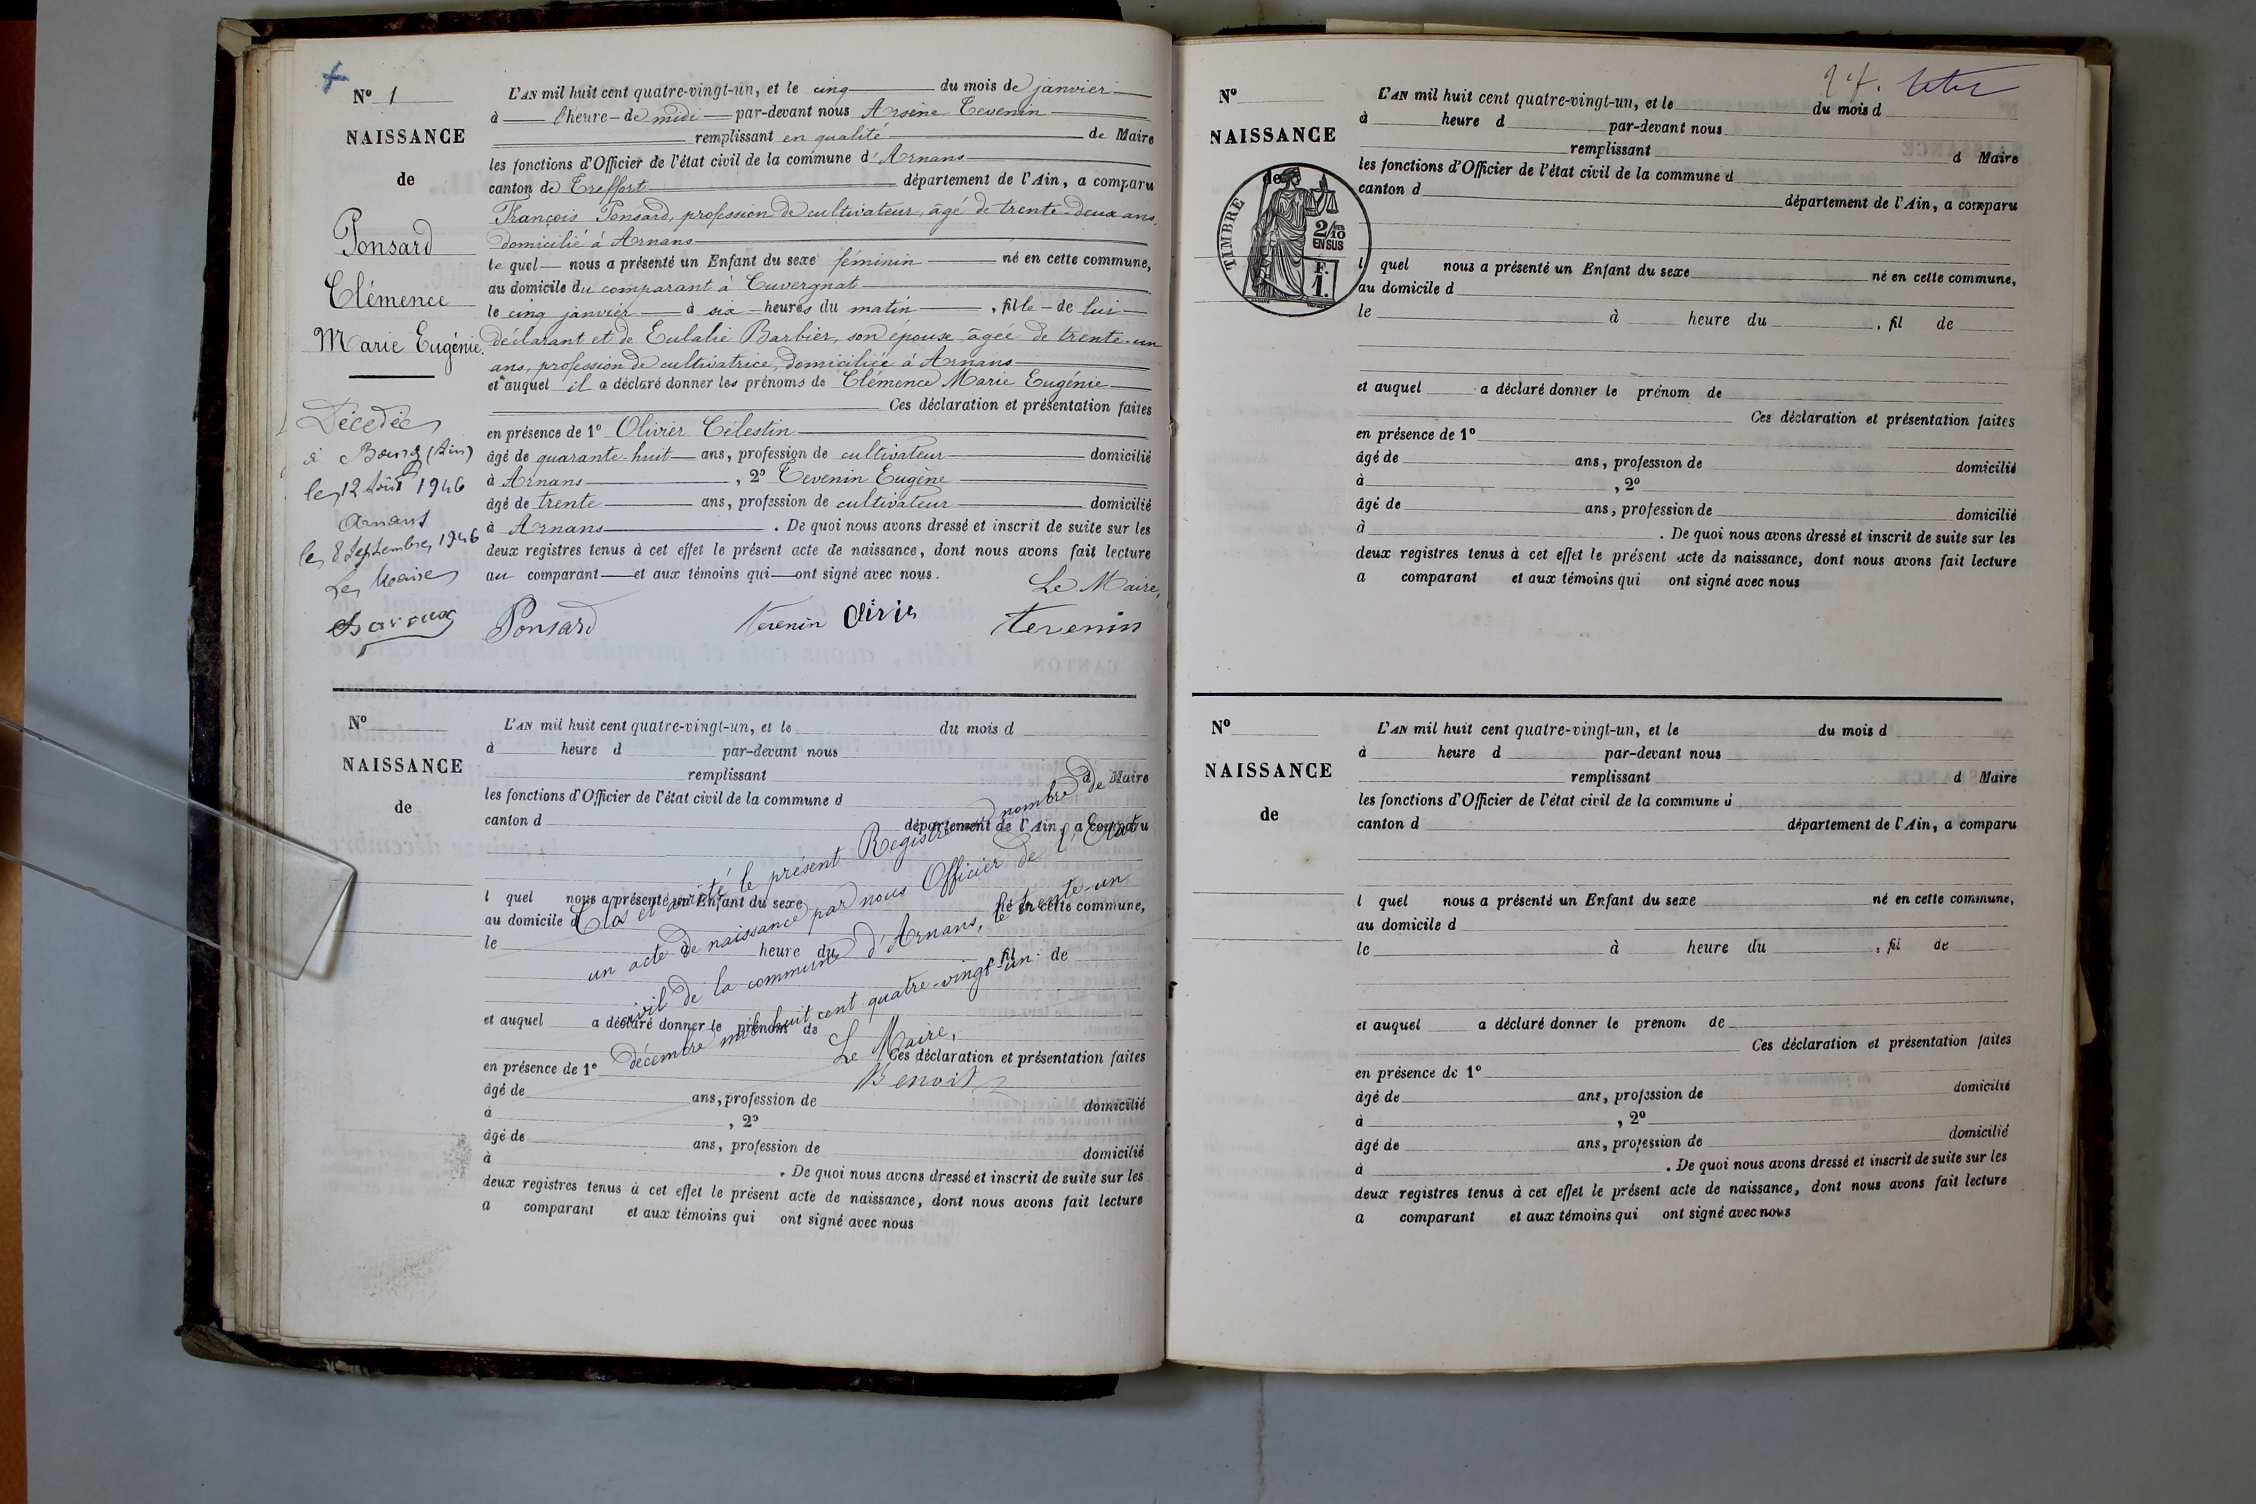 Nº 1
NAISSANCE
de
Ponsard
Clémence
Marie Eugénie.
Décédée
à Bourg (Ain)
le 12 Août 1946
Arnans
le 8 Septembre 1946
Le Maire
L'AN mil huit cent quatre-vingt-un, et le cinq du mois de janvier
à l'heure de midi par-devant nous Arsène Tevenin
remplissant en qualité de Maire
les fonctions d'Officier de l'état civil de la commune d'Arnans
canton de Treffort département de l'Ain, a comparu
François Ponsard, profession de cultivateur, âgé de trente-deux ans,
domicilié à Arnans
le quel nous a présenté un Enfant du sexe féminin né en cette commune,
au domicile du comparant à Cuvergnat
le cinq janvier à six heures du matin, fille de lui
déclarant et de Eulalie Barbier, son épouse âgée de trente-un
ans, profession de cultivatrice, domiciliée à Arnans
et auquel il a déclaré donner les prénoms de Clémence Marie Eugénie
Ces déclaration et présentation faites
en présence de 1º Olivier Célestin
âgé de quarante-huit ans, profession de cultivateur domicilié
à Arnans, 2º Tevenin Eugène
âgé de trente ans, profession de cultivateur domicilié
à Arnans. De quoi nous avons dressé et inscrit de suite sur les
deux registres tenus à cet effet le présent acte de naissance, dont nous avons fait lecture
au comparant et aux témoins qui ont signé avec nous.
Le Maire,
Ponsard Tevenin Olivier Tevenin
Nº
NAISSANCE
de
L'AN mil huit cent quatre-vingt-un, et le du mois d
à heure d par-devant nous
remplissant d Maire
les fonctions d'Officier de l'état civil de la commune d
canton d département de l'Ain, a comparu
l quel nous a présenté un Enfant du sexe né en cette commune,
au domicile d
le à heure du , fil de
et auquel a déclaré donner le prénom de
Ces déclaration et présentation faites
en présence de 1º
âgé de ans, profession de domicilié
à , 2º
âgé de ans, profession de domicilié
à . De quoi nous avons dressé et inscrit de suite sur les
deux registres tenus à cet effet le présent acte de naissance, dont nous avons fait lecture
a comparant et aux témoins qui ont signé avec nous
Clos et arrêté le présent Registre au nombre de
un acte de naissance par nous Officier de l'Etat
civil de la commune d'Arnans, le trente-un
décembre mil huit cent quatre-vingt-un.
Le Maire,
Benoit
Nº
NAISSANCE
de
TIMBRE
2/10
EN SUS
F.
1.
L'AN mil huit cent quatre-vingt-un, et le du mois d
à heure d par-devant nous
remplissant d Maire
les fonctions d'Officier de l'état civil de la commune d
canton d département de l'Ain, a comparu
l quel nous a présenté un Enfant du sexe né en cette commune,
au domicile d
le à heure du , fil de
et auquel a déclaré donner le prénom de
Ces déclaration et présentation faites
en présence de 1º
âgé de ans, profession de domicilié
à , 2º
âgé de ans, profession de domicilié
à . De quoi nous avons dressé et inscrit de suite sur les
deux registres tenus à cet effet le présent acte de naissance, dont nous avons fait lecture
a comparant et aux témoins qui ont signé avec nous
Nº
NAISSANCE
de
L'AN mil huit cent quatre-vingt-un, et le du mois d
à heure d par-devant nous
remplissant d Maire
les fonctions d'Officier de l'état civil de la commune d
canton d département de l'Ain, a comparu
l quel nous a présenté un Enfant du sexe né en cette commune,
au domicile d
le à heure du , fil de
et auquel a déclaré donner le prenom de
Ces déclaration et présentation faites
en présence de 1º
âgé de ans, profession de domicilié
à , 2º
âgé de ans, profession de domicilié
à . De quoi nous avons dressé et inscrit de suite sur les
deux registres tenus à cet effet le présent acte de naissance, dont nous avons fait lecture
a comparant et aux témoins qui ont signé avec nous